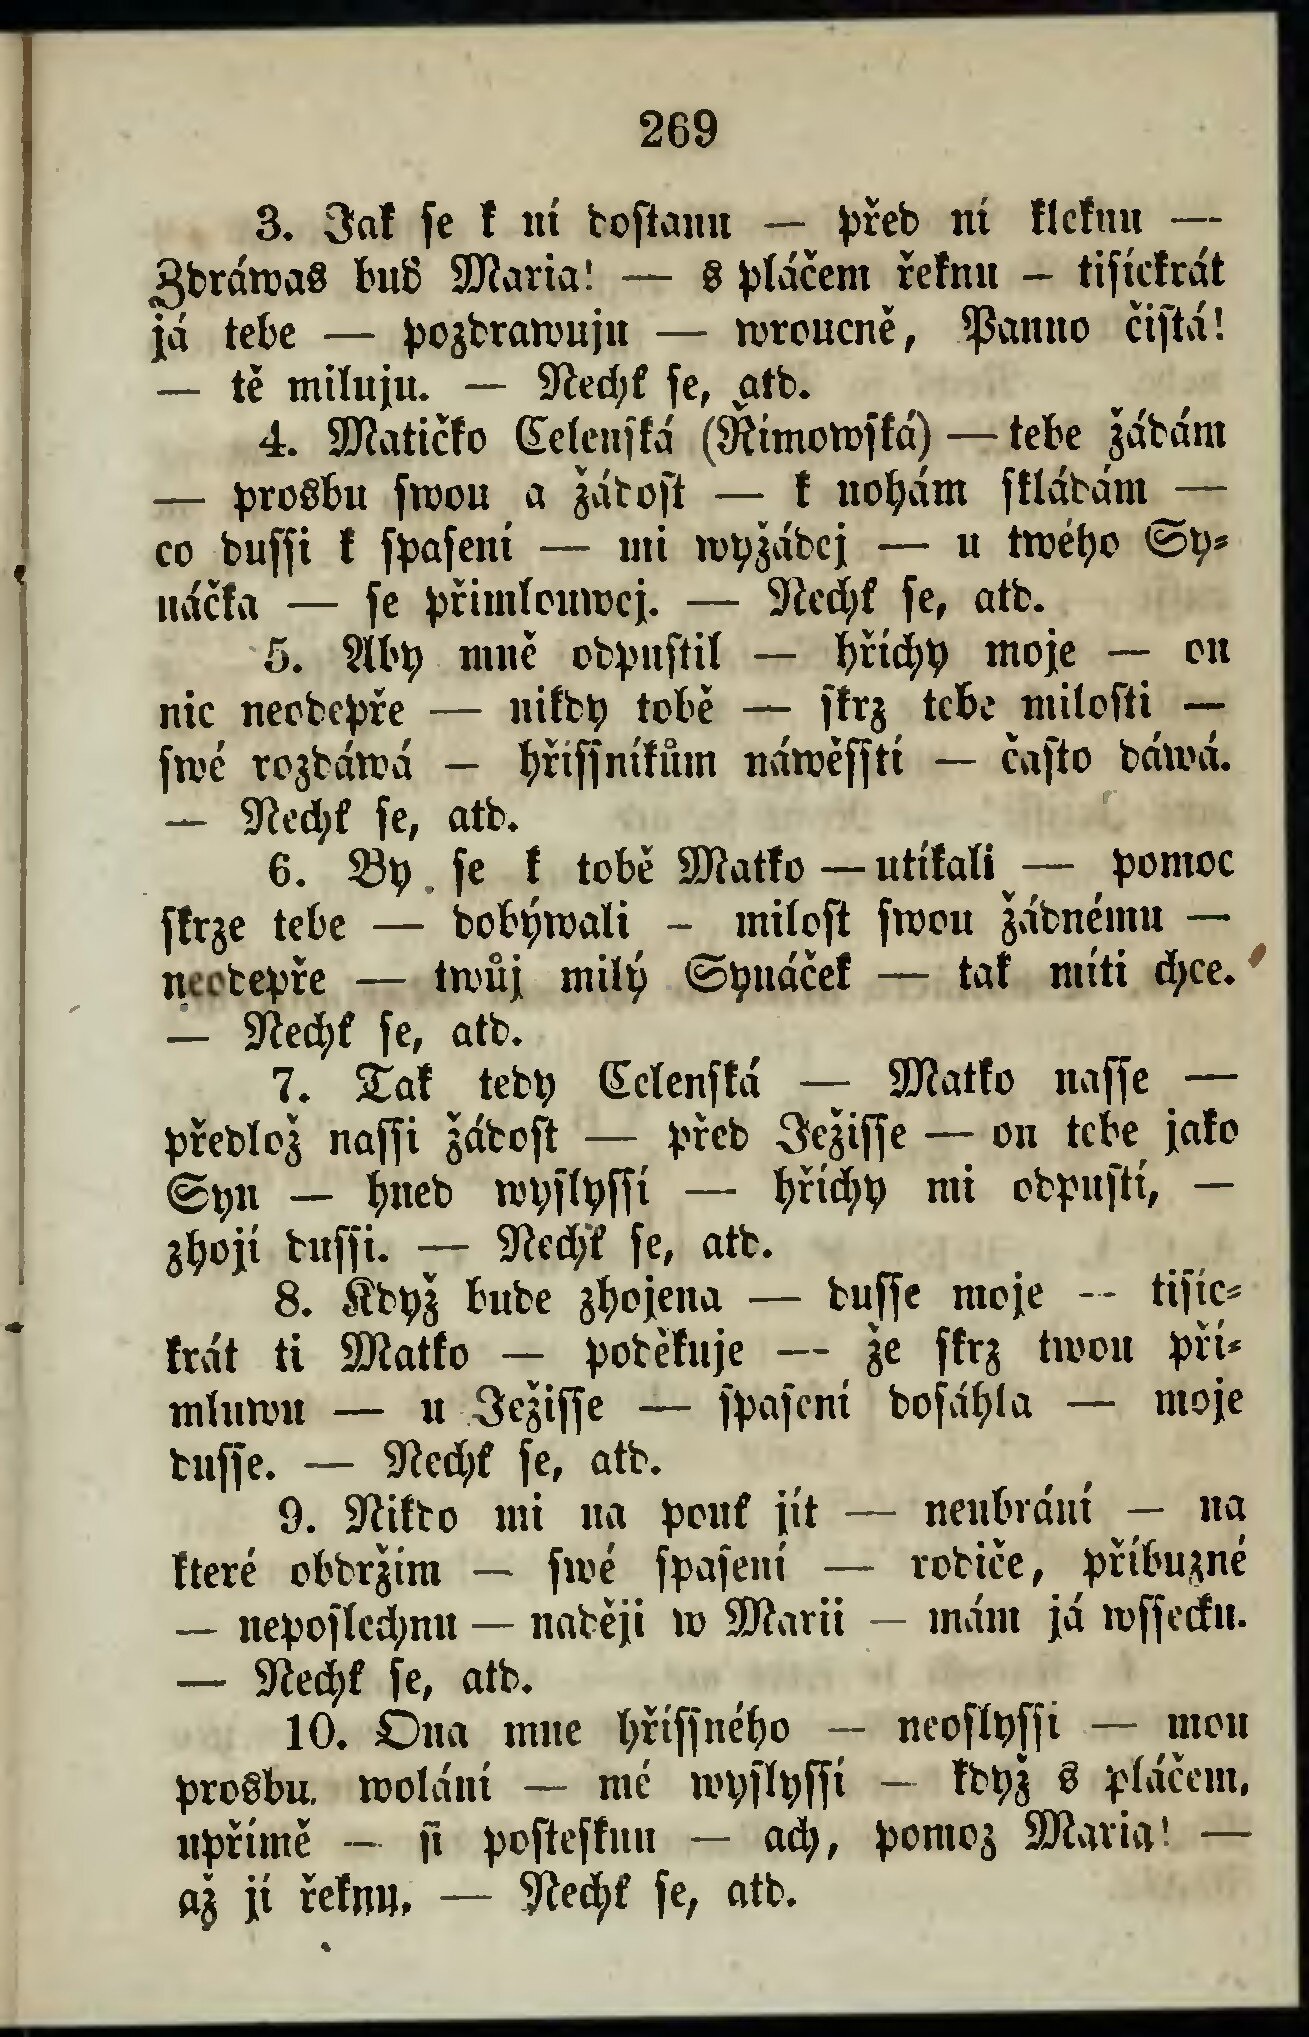 269
3. Jak ſe k ní doſtanu — před ní kleknu —
Zdráwas buď Maria! — s pláčem řeknu – tiſíckrát
já tebe — pozdrawuju — wroucně, Panno čiſtá!
— tě miluju. — Nechť ſe, atd.
4. Matičko Celenſká (Římowſká) — tebe žádám
— prosbu ſwou a žádoſt — k nohám ſkládám —
co duſſi k ſpaſení — mi wyžádej — u twého Sy-
náčka — ſe přimlouwej. — Nechť ſe, atd.
5. Aby mně odpuſtil — hříchy moje — on
nic neodepře — nikdy tobě — ſkrz tebe miloſti —
ſwé rozdáwá – hříſſníkům náwěſſtí — čaſto dáwá.
— Nechť ſe, atd.
6. By ſe k tobě Matko — utíkali — pomoc
ſkrze tebe — dobýwali – miloſt ſwou žádnému —
neodepře — twůj milý Synáček — tak míti chce.
— Nechť ſe, atd.
7. Tak tedy Celenſká — Matko naſſe —
předlož naſſi žádoſt — před Ježiſſe — on tebe jako
Syn — hned wyſlyſſí — hříchy mi odpuſtí, —
zhojí duſſi. — Nechť ſe, atd.
8. Když bude zhojena — duſſe moje -- tiſíc-
krát ti Matko — poděkuje — že ſkrz twou pří-
mluwu — u Ježiſſe — ſpaſení doſáhla — moje
duſſe. — Nechť ſe, atd.
9. Nikdo mi na pouť jít — neubrání — na
které obdržím — ſwé ſpaſení — rodiče, příbuzné
— nepoſlechnu — naději w Marii — mám já wſſecku.
— Nechť ſe, atd.
10. Ona mne hříſſného — neoſlyſſí — mou
prosbu, wolání — mé wyſlyſſí — když s pláčem,
upřímě — ſi poſteſknu — ach, pomoz Maria! —
až jí řeknu, — Nechť ſe, atd.